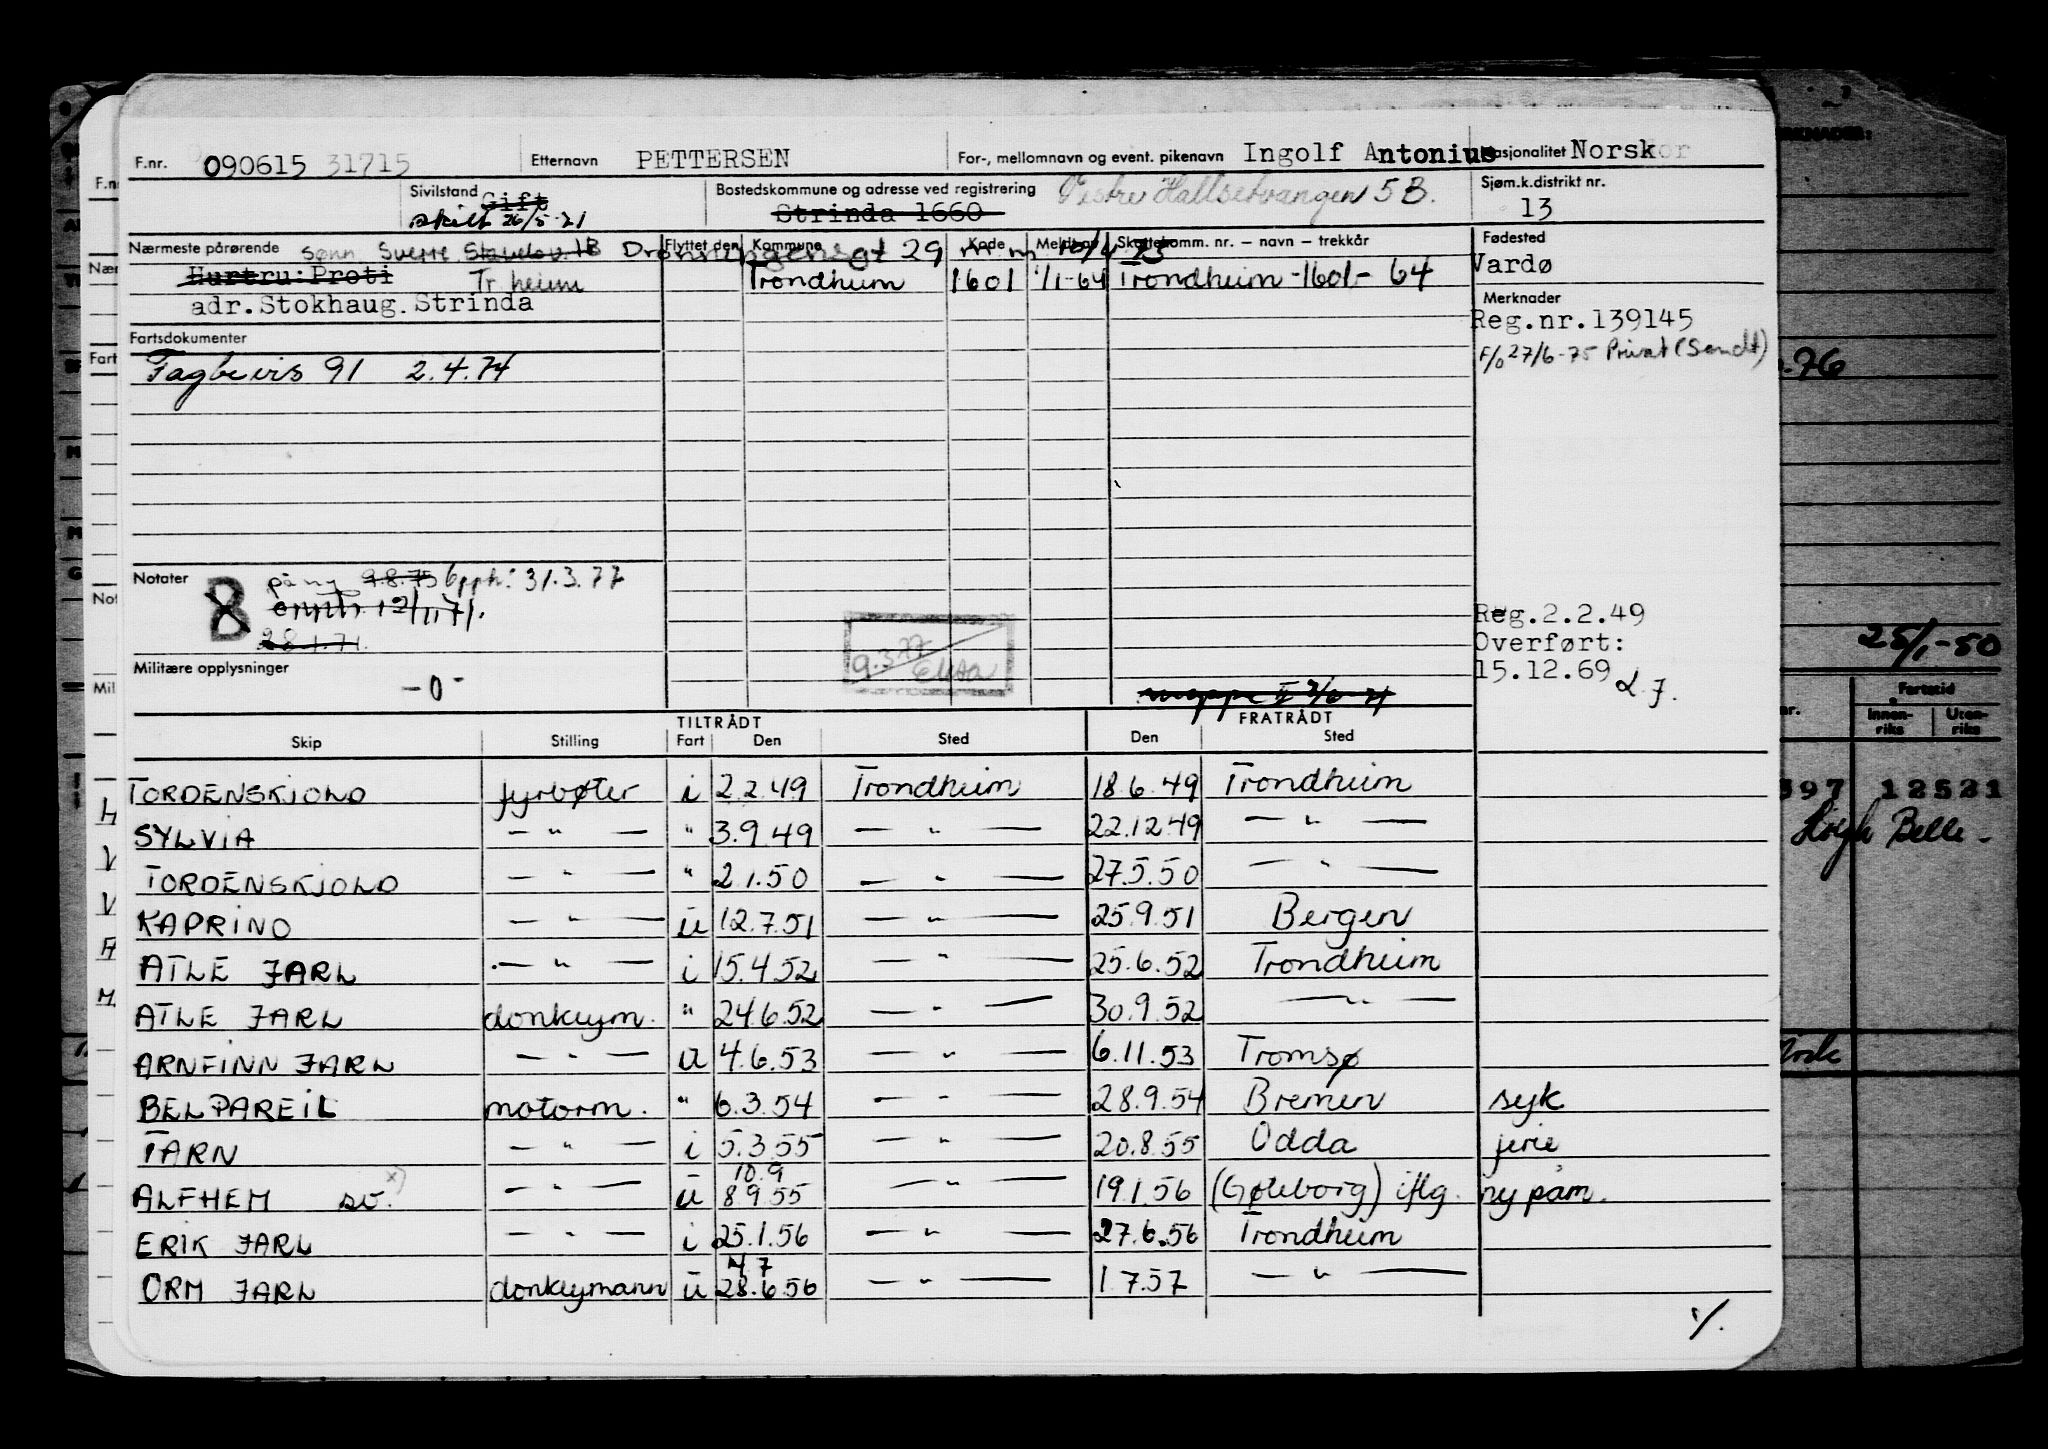 F.nr. 090615 31715 Etternavn PETTERSEN For-, mellomnavn og event. pikenavn Ingolf Antonius Nasjonalitet Norsk
Sivilstand Gift skilt 26/5-71 Bostedskommune og adresse ved registrering Strinda 1660 Vestre Hallsetvangen 5B. Sjøm.k.distrikt nr. 13
Nærmeste pårørende sønn Sverre Dronningensgt 29 10/4 73
Flyttet den Kommune Kode Meldt av Skattekomm. nr. – navn – trekkår Fødested
Hustru: Tr heim Trondheim 1601 1/1-64 Trondheim -1601- 64 Vardø
adr. Stokhaug. Strinda
Merknader
Reg.nr.139145
Fartsdokumenter
F/o 27/6-75 Privat (Sendt)
Fagbevis 91 2.4.74
-76
Notater
8 på ny 9.8.75 Opph: 31.3.77
12/11 71.
28.1.71.
Reg.2.2.49
Overført:
15.12.69
25/1-50
9.3.77
Militære opplysninger
-0-
mappe II
TILTRÅDT FRATRÅDT
Skip Stilling Fart Den Sted Den Sted
Fartstid
Innen-riks Uten-riks
TORDENSKJOLD fyrbøter i 2.2.49 Trondheim 18.6.49 Trondheim
SYLVIA — " — " 3.9.49 — " — 22.12.49 — " —
TORDENSKJOLD — " — " 2.1.50 — " — 27.5.50 — " —
KAPRINO — " — u 12.7.51 — " — 25.9.51 Bergen
ATLE JARL — " — i 15.4.52 — " — 25.6.52 Trondheim
ATLE JARL donkeym. " 24.6.52 — " — 30.9.52 — " —
ARNFINN JARL — " — u 4.6.53 — " — 6.11.53 Tromsø
BELPAREIL motorm. " 6.3.54 — " — 28.9.54 Bremen syk
TARN — " — i 5.3.55 — " — 20.8.55 Odda ferie
10.9
ALFHEM sv. x) — " — u 8.9.55 — " — 19.1.56 (Gøteborg) iflg. ny påm.
ERIK JARL — " — i 25.1.56 — " — 27.6.56 Trondheim
4 7
ORM JARL donkeymann u 28.6.56 — " — 1.7.57 — " —
397 12521
Høegh Belle -